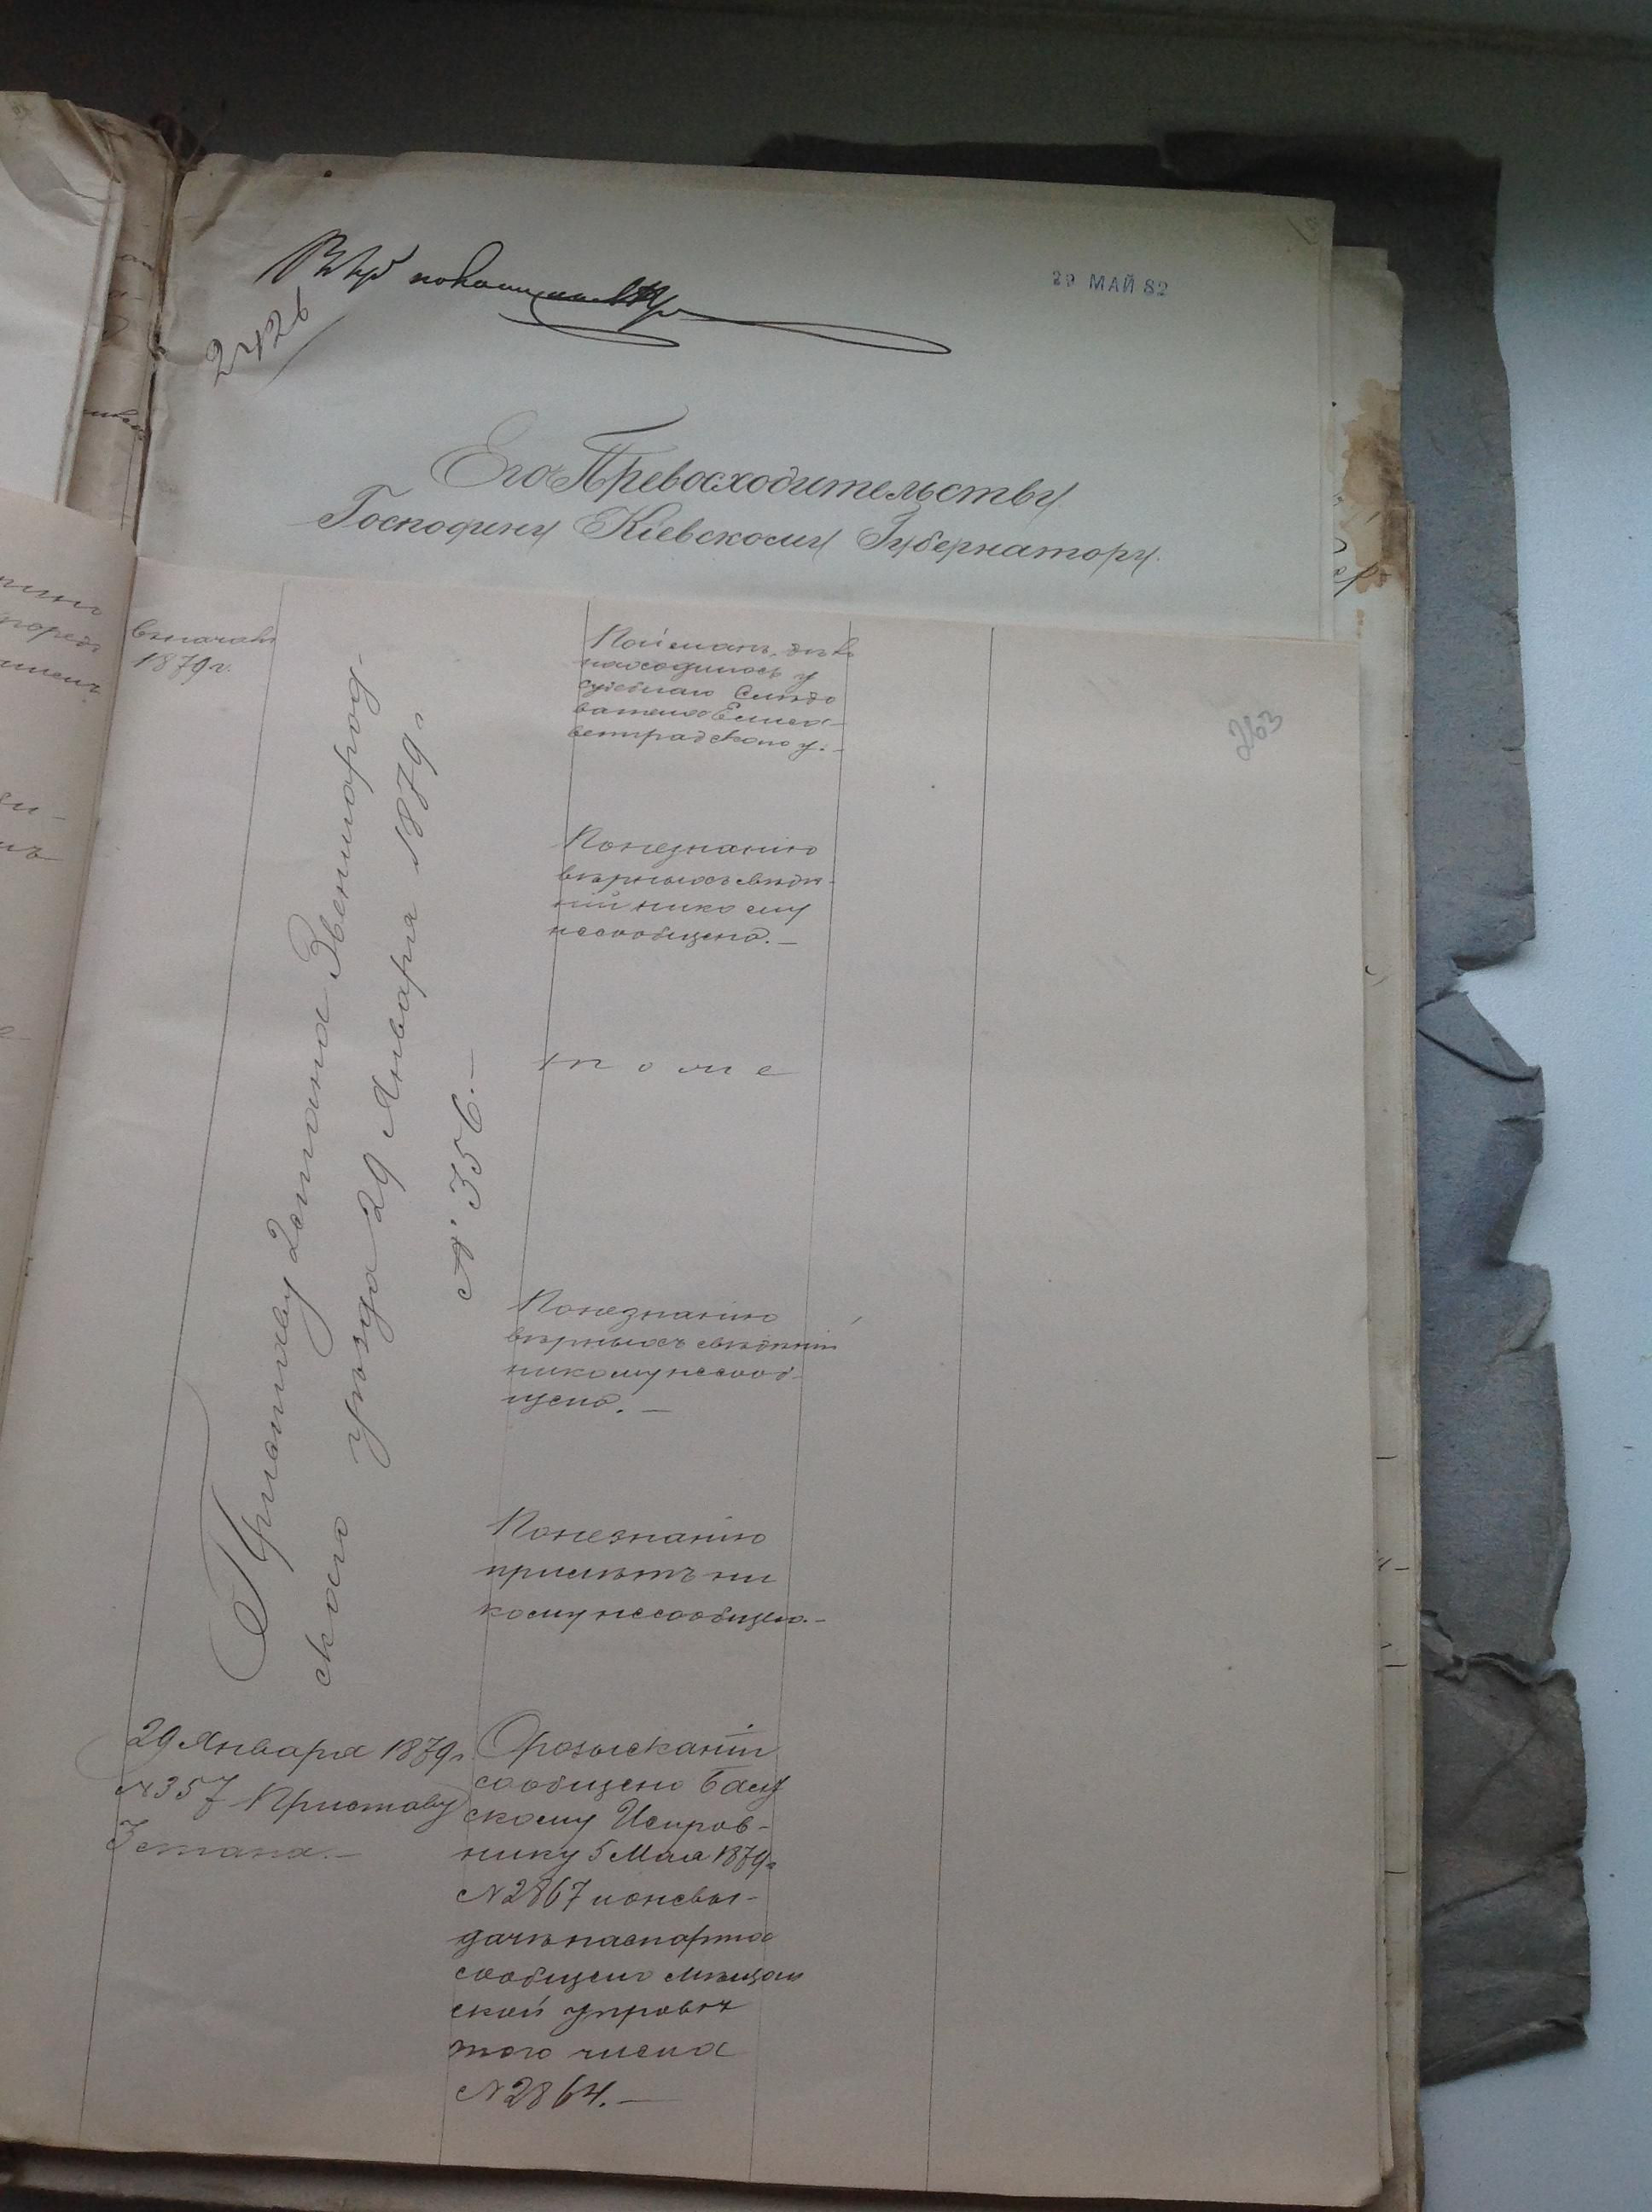 29 МАЙ 82
2426
Его Превосходительству
Господину Кіевскому Губернатору.
263
вначалѣ
1879 г.
Приставу 2 стана Звенигород-
скаго уѣзда 29 Января 1879 г.
№ 356.—
Пойманъ, дѣло
находилось у
судебнаго Слѣдо
вателя Елиса-
ветградскаго у.—
Понезнанію
вѣрныхъ свѣдѣ-
ній никому
несообщено.—
тоже
Понезнанію
вѣрныхъ свѣдѣній
никому несооб-
щено.—
Понезнанію
примѣтъ ни
кому несообщено.—
29 Января 1879 г.
№ 357 Приставу
3 стана.—
Орозысканіи
сообщено
скому Исправ-
нику 5 Мая 1879 г.
№ 2867 и оневы-
дачѣ паспорта
сообщено мѣщан
ской управѣ
того числа
№ 2864.—